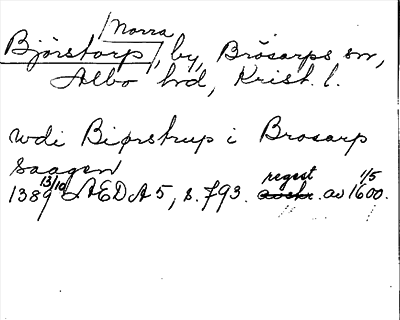 Norra
Björstorp, by, Brösarps sn,
Albo hd, Krist. l.
wdi Biørstrup i Brosarp
saagen
1389 13/10 ÆDA 5, s. 793. regest av 1600. 1/5